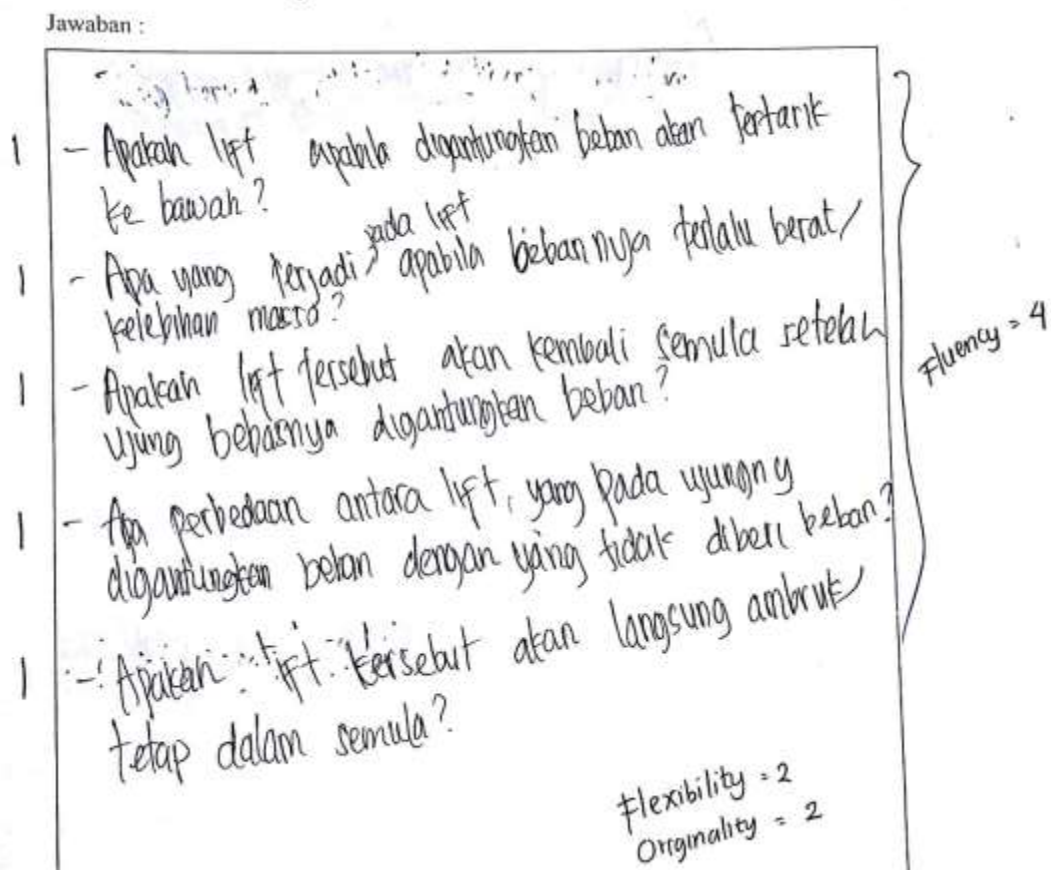 Jawaban :
1 - Apakah lift apabila digantungkan beban akan tertarik
ke bawah?
pada lift
1 - Apa yang terjadi apabila bebannya terlalu berat/
kelebihan massa?
1 - Apakah lift tersebut akan kembali semula setelah
ujung bebasnya digantungkan beban?
1 - Apa perbedaan antara lift, yang pada ujungny
digantungkan beban dengan yang tidak diberi beban?
1 - Apakah lift tersebut akan langsung ambruk/
tetap dalam semula?
Fluency = 4
Flexibility = 2
Originality = 2